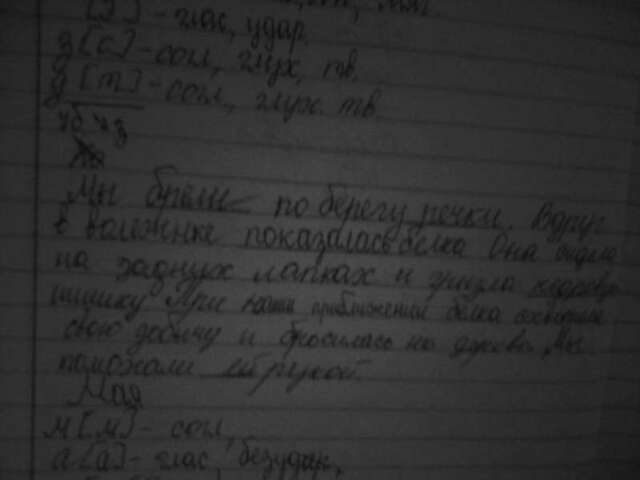 [э] - глас, удар.
з [с] - согл, глух, тв.
д [т] - согл, глух. тв.
Мы брели по берегу речки. Вдруг
в показалась белка Она сидела
на задних лапках и грызла кедровую
шишку При нашем приближении белка
свою добычу и бросилась на дерево. Мы
помахали ей рукой.
Мая
м [м] - согл,
а [а] - глас, безудар,